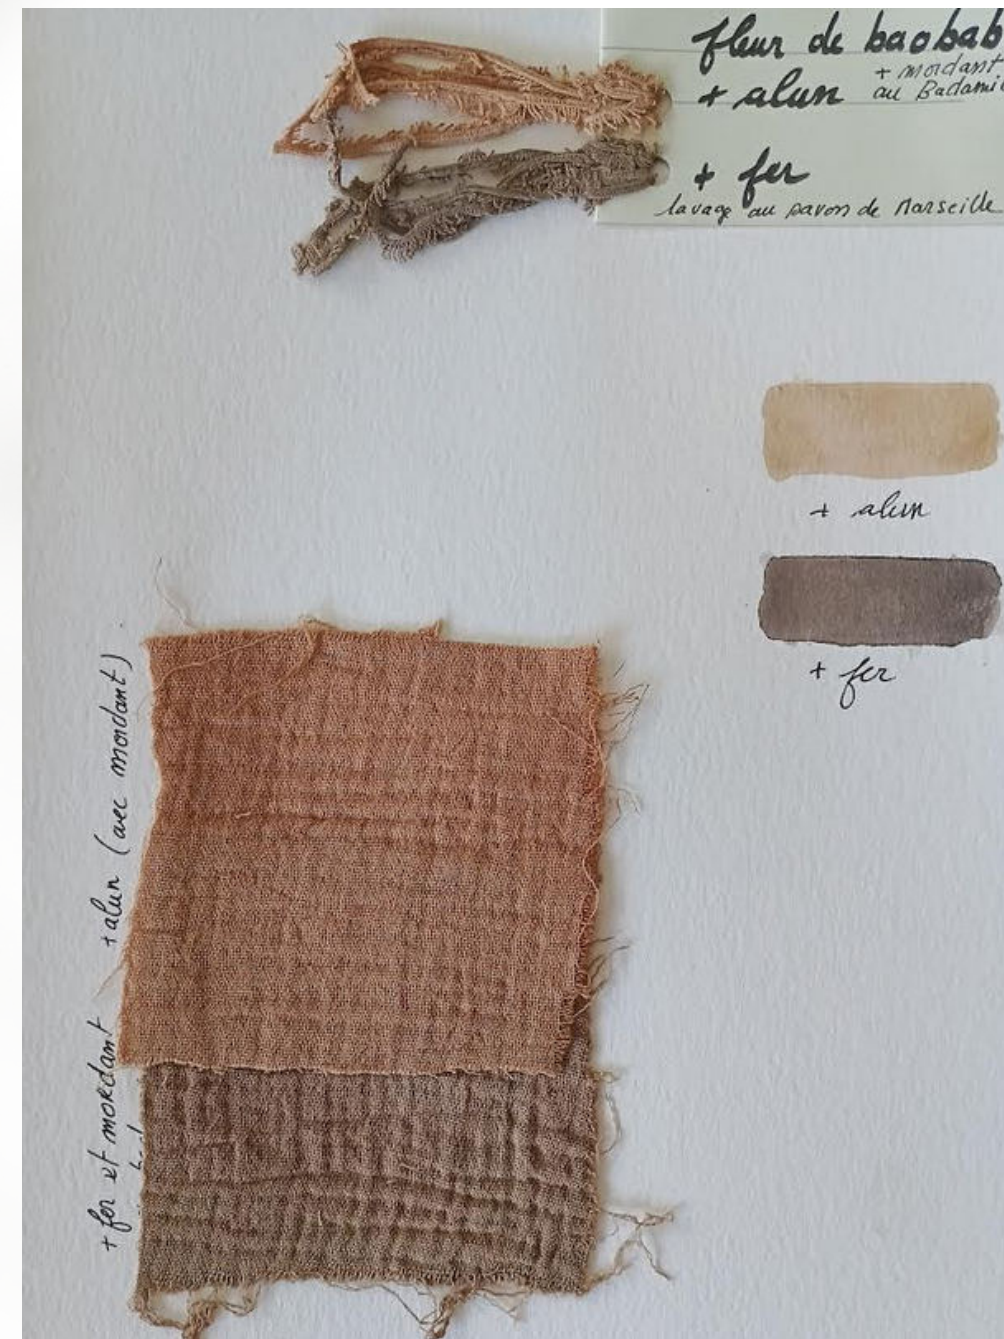 fleur de baobab
+ alun + mordant
au Badami
+ fer
lavage au savon de Marseille
+ alun
+ fer
+ alun (avec mordant)
+ fer et mordant